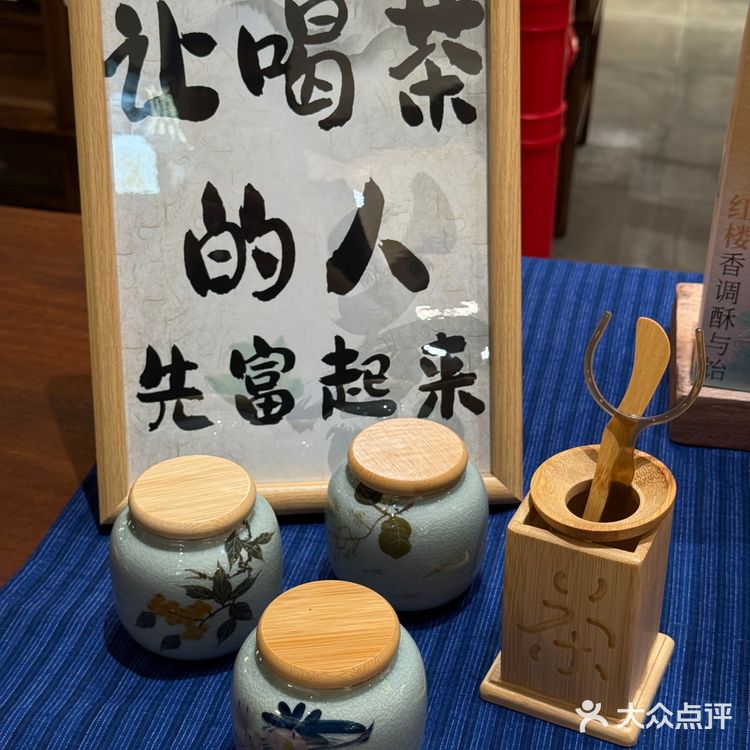 让喝茶
的人
先富起来
红楼
香调酥与冶
茶
大众点评